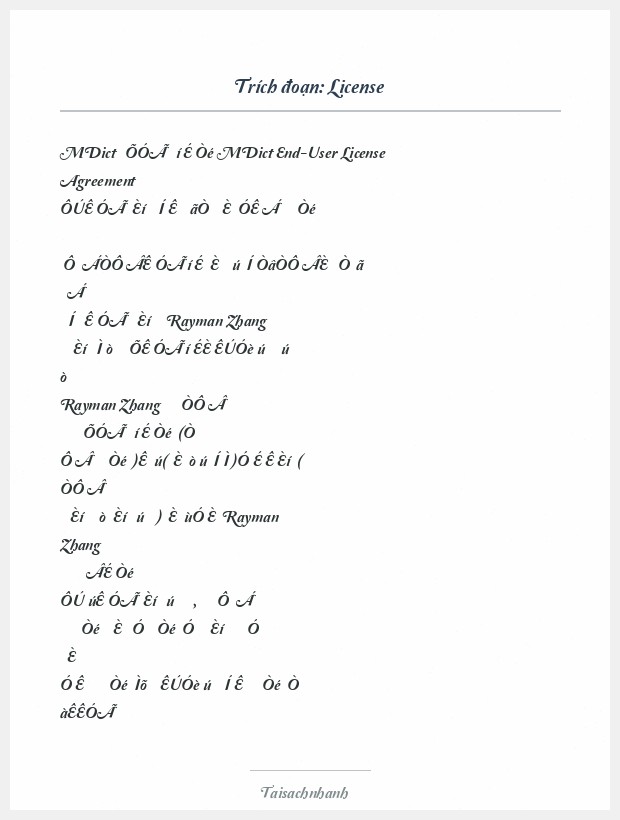 Trích đoạn: License
MDict ÕÓÃ íÉ Òé MDict End-User License
Agreement
ÔÚÊ ÓÃ Èí Í Ê ãÒ È ÓÊ Á Òé
Ô ÁÒÔ ÂÊ ÓÃ íÉ È ú Í ÒâÒÔ ÂÈ Ò ã
Á
Í Ê ÓÃ Èí Rayman Zhang
Èí Ì ò ÕÊ ÓÃ í ÉÈ ÊÚÓè ú ú
ò
Rayman Zhang ÒÔ Â
ÕÓÃ íÉ Òé (Ò
Ô Â Òé )Ê ú( È ò ú Í Ì)Ó É Ê Èí (
ÒÔ Â
Èí ò Èí ú ) È ùÓ È Rayman
Zhang
ÂÉ Òé
ÔÚ úÊ ÓÃ Èí ú , Ô Á
Òé È Ó Òé Ó Èí Ó
È
Ó Ê Òé Ìõ ÊÚÓè ú Í Ê Òé Ò
àÊÊÓÃ
Taisachnhanh